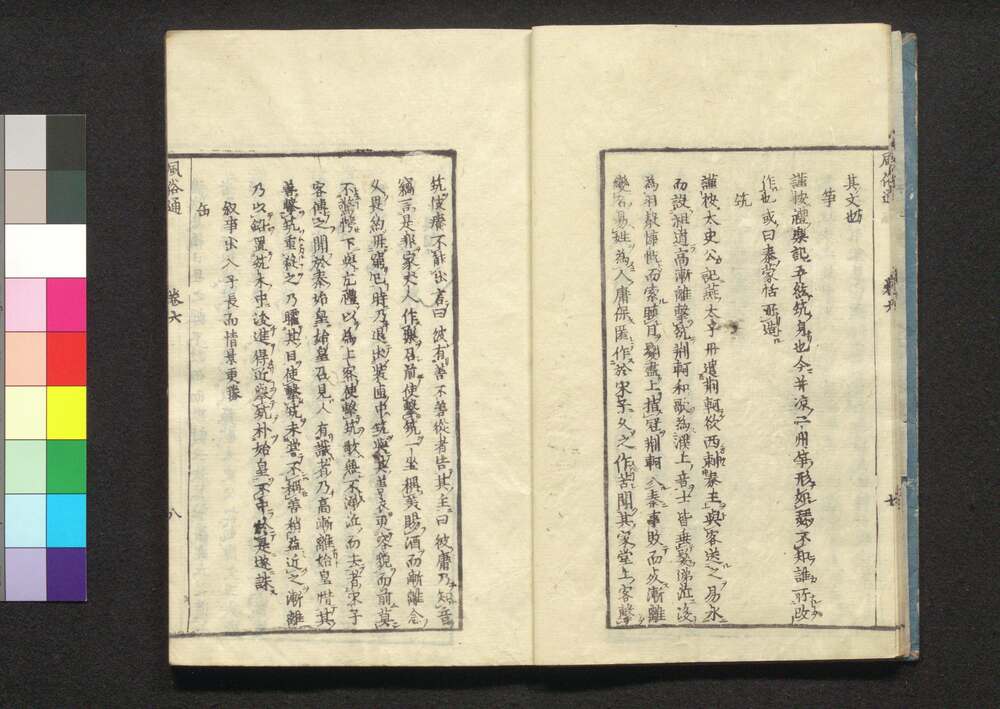 其文也
筝
謹按禮樂記五絃筑身也今并凉二州筝形如瑟不知誰所改
作也或曰秦蒙恬所造
筑
謹按太史公記燕太子丹遣荆軻欲西刺秦王與客送之易水
而設祖道高漸離擊筑荆軻和歌為濮上音士皆垂髮涕泣後
為羽聲慷慨而索瞋目髮盡上指冠荆軻入秦事敗而死漸離
變名易姓為人庸保匿作於宋子久之作苦聞其家堂上客擊
筑伎癢不能出言曰彼有善不善從者告其主曰彼庸乃知音
竊言是非家丈人作樂召前使擊筑一坐稱美賜酒而漸離念
久畏約無窮已時乃退出裝匣中筑與其善衣更容貌而前莫
不驚愕下與亢禮以為上客使擊筑歌無不涕泣而去者宋子
客傳之聞於秦始皇始皇召見人有識者乃高漸離始皇惜其
善擊筑重赦之乃矐其目使擊筑未嘗不稱善稍益近之漸離
乃以鉛置筑木中後進得近擧筑朴始皇不中於是遂誅
叙事出入子長而情景更
缶
風俗通
卷六
八